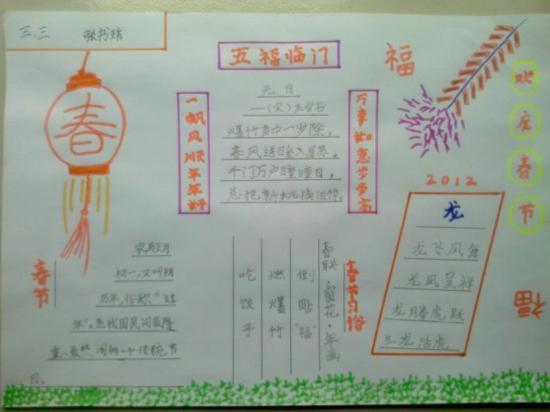 三.三 张书
五福临门
一帆风顺年年好
万事如意步步高
元日
—(宋)王安石
爆竹声中一岁除,
春风送暖入屠苏。
千门万户曈曈日,
总把新桃换旧符。
福
欢庆春节
2012
龙
龙飞凤舞
龙凤呈祥
龙腾虎跃
生龙活虎
福
春
春节
农历正月
初一,又叫阴
历年,俗称"过
年"。是我国民间最隆
重、最热闹的一个传统节
日。
春节习俗
春联·窗花·年画
倒贴"福"
燃爆竹
吃饺子